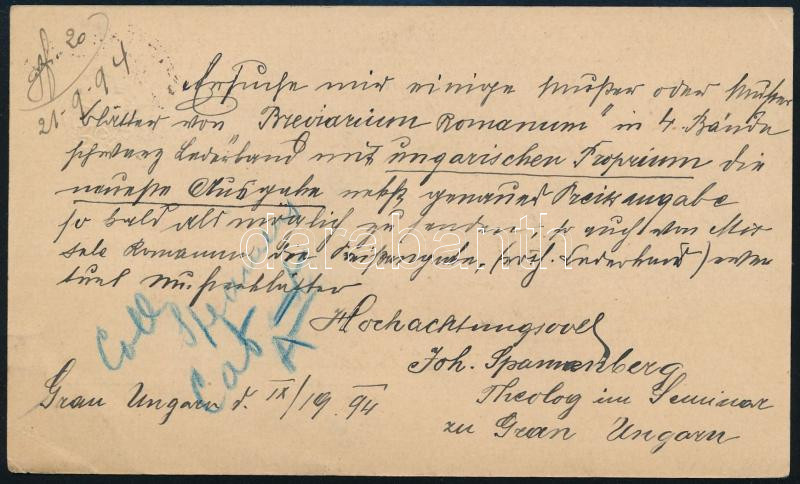 20
21-9-94
Ersuche mir einige Muster oder Muster
blätter von "Breviarium Romanum" in 4. Bände
schwarz Lederband mit ungarischen Proprium die
neueste Ausgabe nebst genauer Preisangabe
so bald als möglich zu senden, so auch von Mis-
sale Romanum die Preisangabe, (roth. Lederband) even
tuel Musterblätter
Hochachtungsvoll
Joh. Spannenberg
Theolog im Seminar
zu Gran Ungarn
Gran Ungarn d. IX/19. 94
Coll
Cat
darabanth